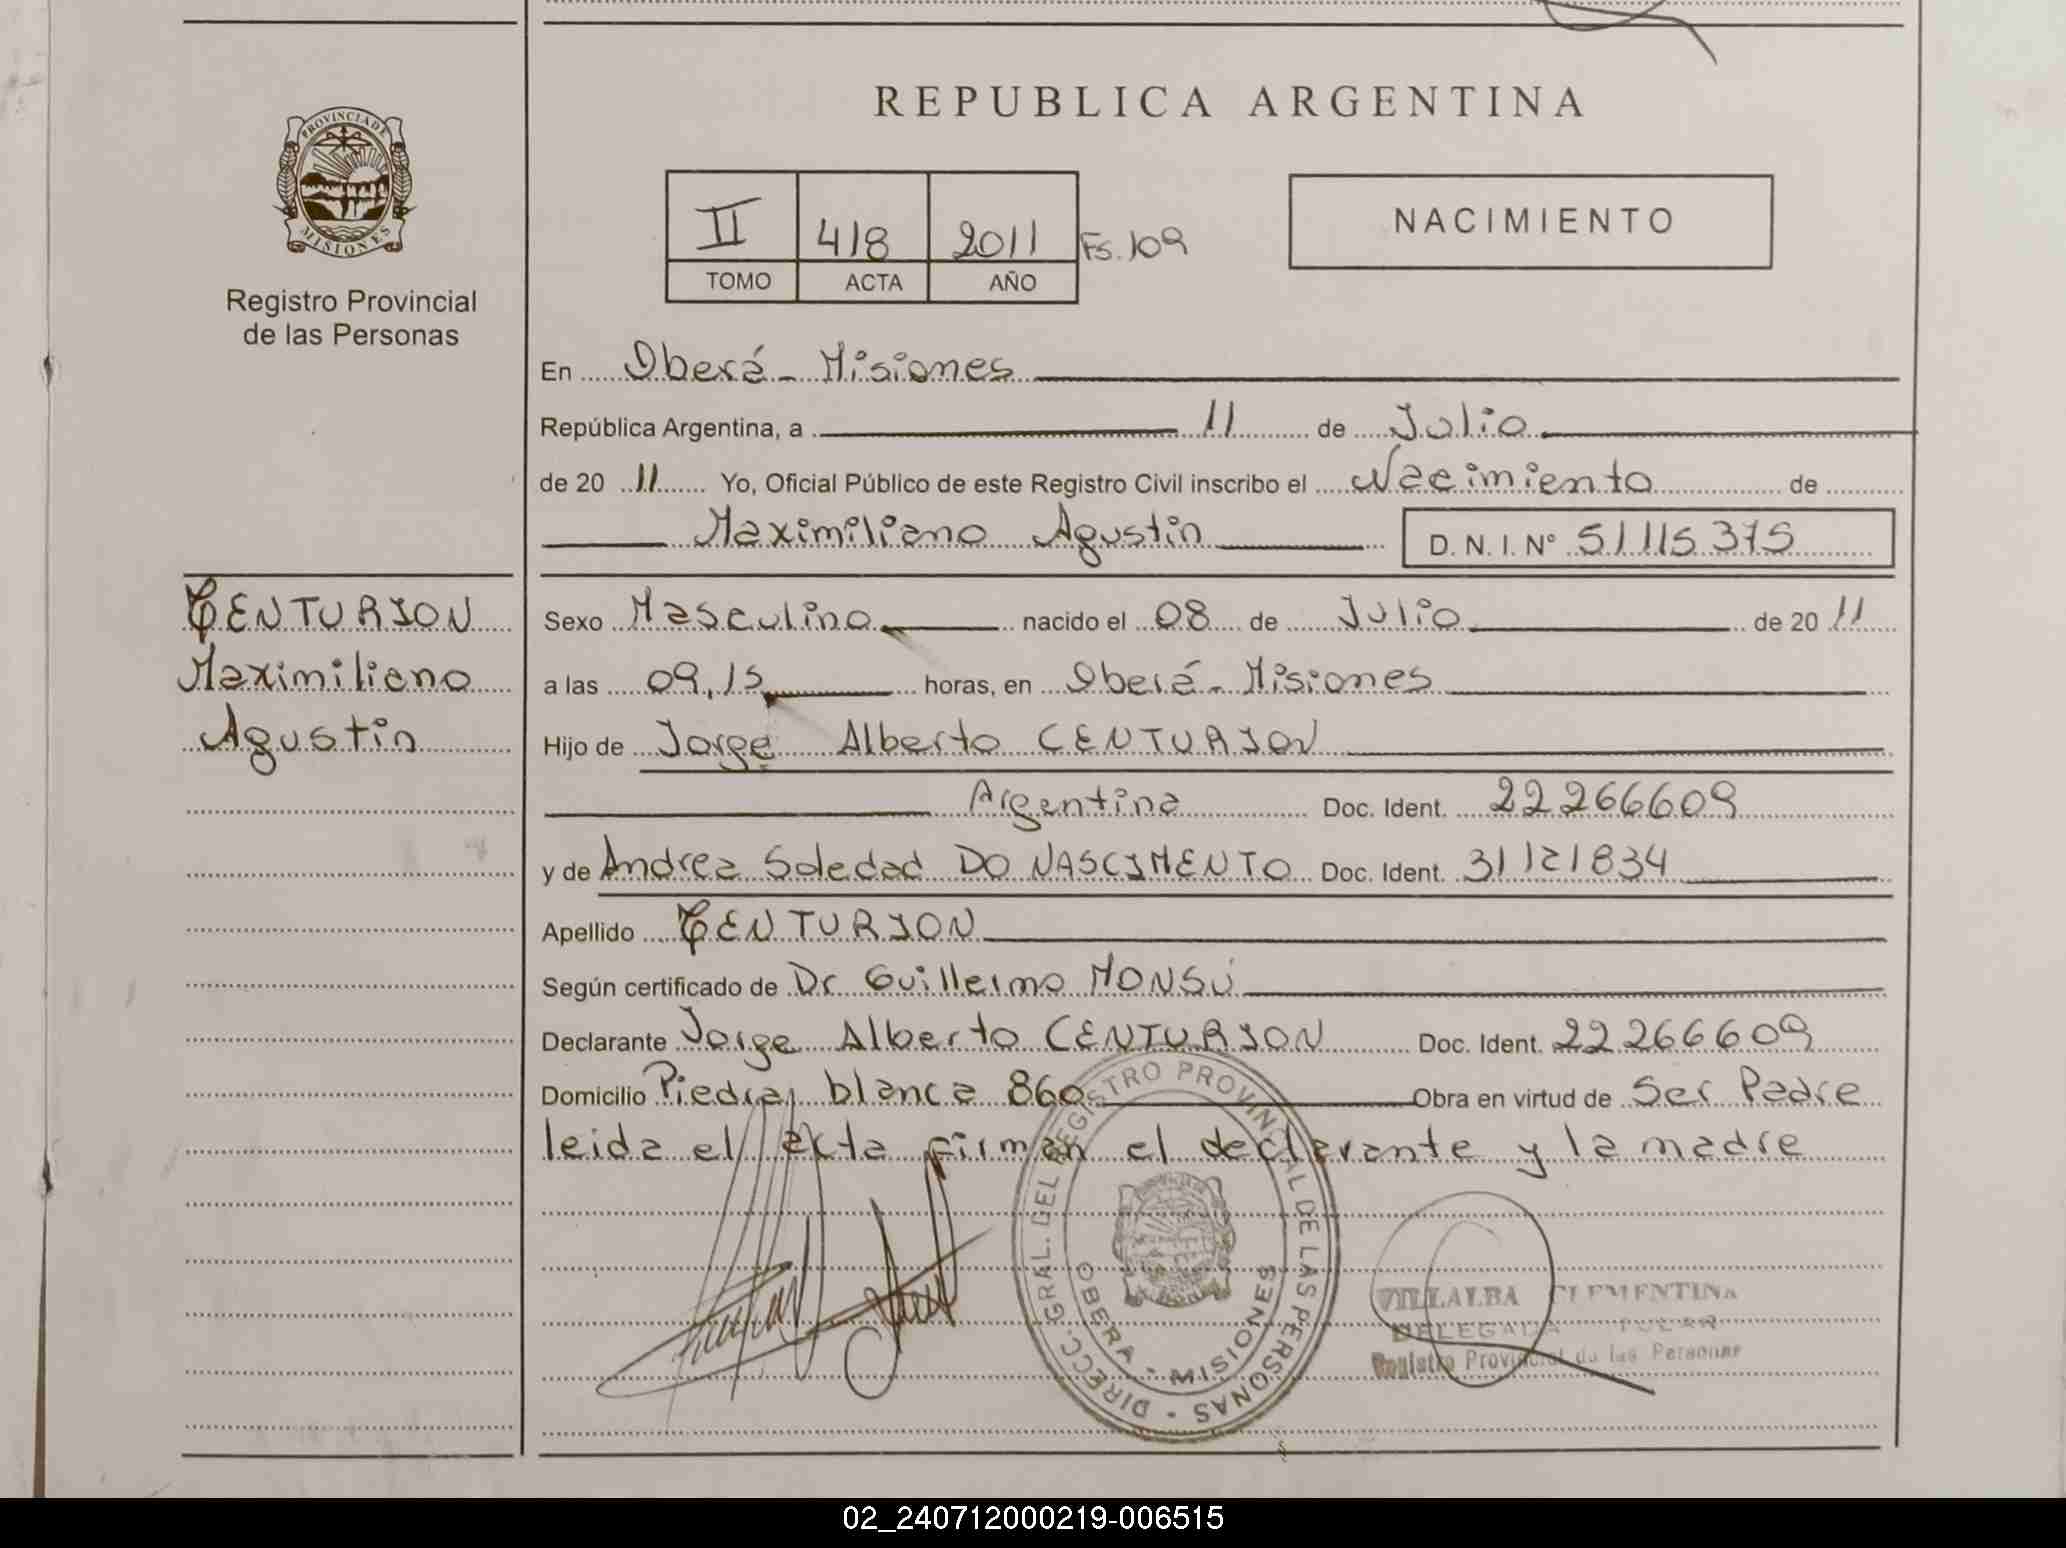 PROVINCIA DE
MISIONES
Registro Provincial
de las Personas
CENTURION
Maximiliano
Agustin
REPUBLICA ARGENTINA
II 418 2011 Fs. 109
TOMO ACTA AÑO
NACIMIENTO
En Oberá - Misiones
República Argentina, a 11 de Julio
de 20 11 Yo, Oficial Público de este Registro Civil inscribo el Nacimiento de
Maximiliano Agustin D. N. I. Nº 51115375
Sexo Masculino nacido el 08 de Julio de 20 11
a las 09,15 horas, en Oberá - Misiones
Hijo de Jorge Alberto CENTURION
Argentina Doc. Ident. 22266609
y de Andrea Soledad DO NASCIMENTO Doc. Ident. 31121834
Apellido CENTURION
Según certificado de Dr Guillermo MONSÚ
Declarante Jorge Alberto CENTURION Doc. Ident. 22266609
Domicilio Piedras blanca 860 Obra en virtud de Ser Padre
leida el acta firman el declarante y la madre
DIRECC. GRAL. DEL REGISTRO PROVINCIAL DE LAS PERSONAS
OBERA - MISIONES
VILLALBA CLEMENTINA
DELEGADA TITULAR
Registro Provincial de las Personas
02_240712000219-006515